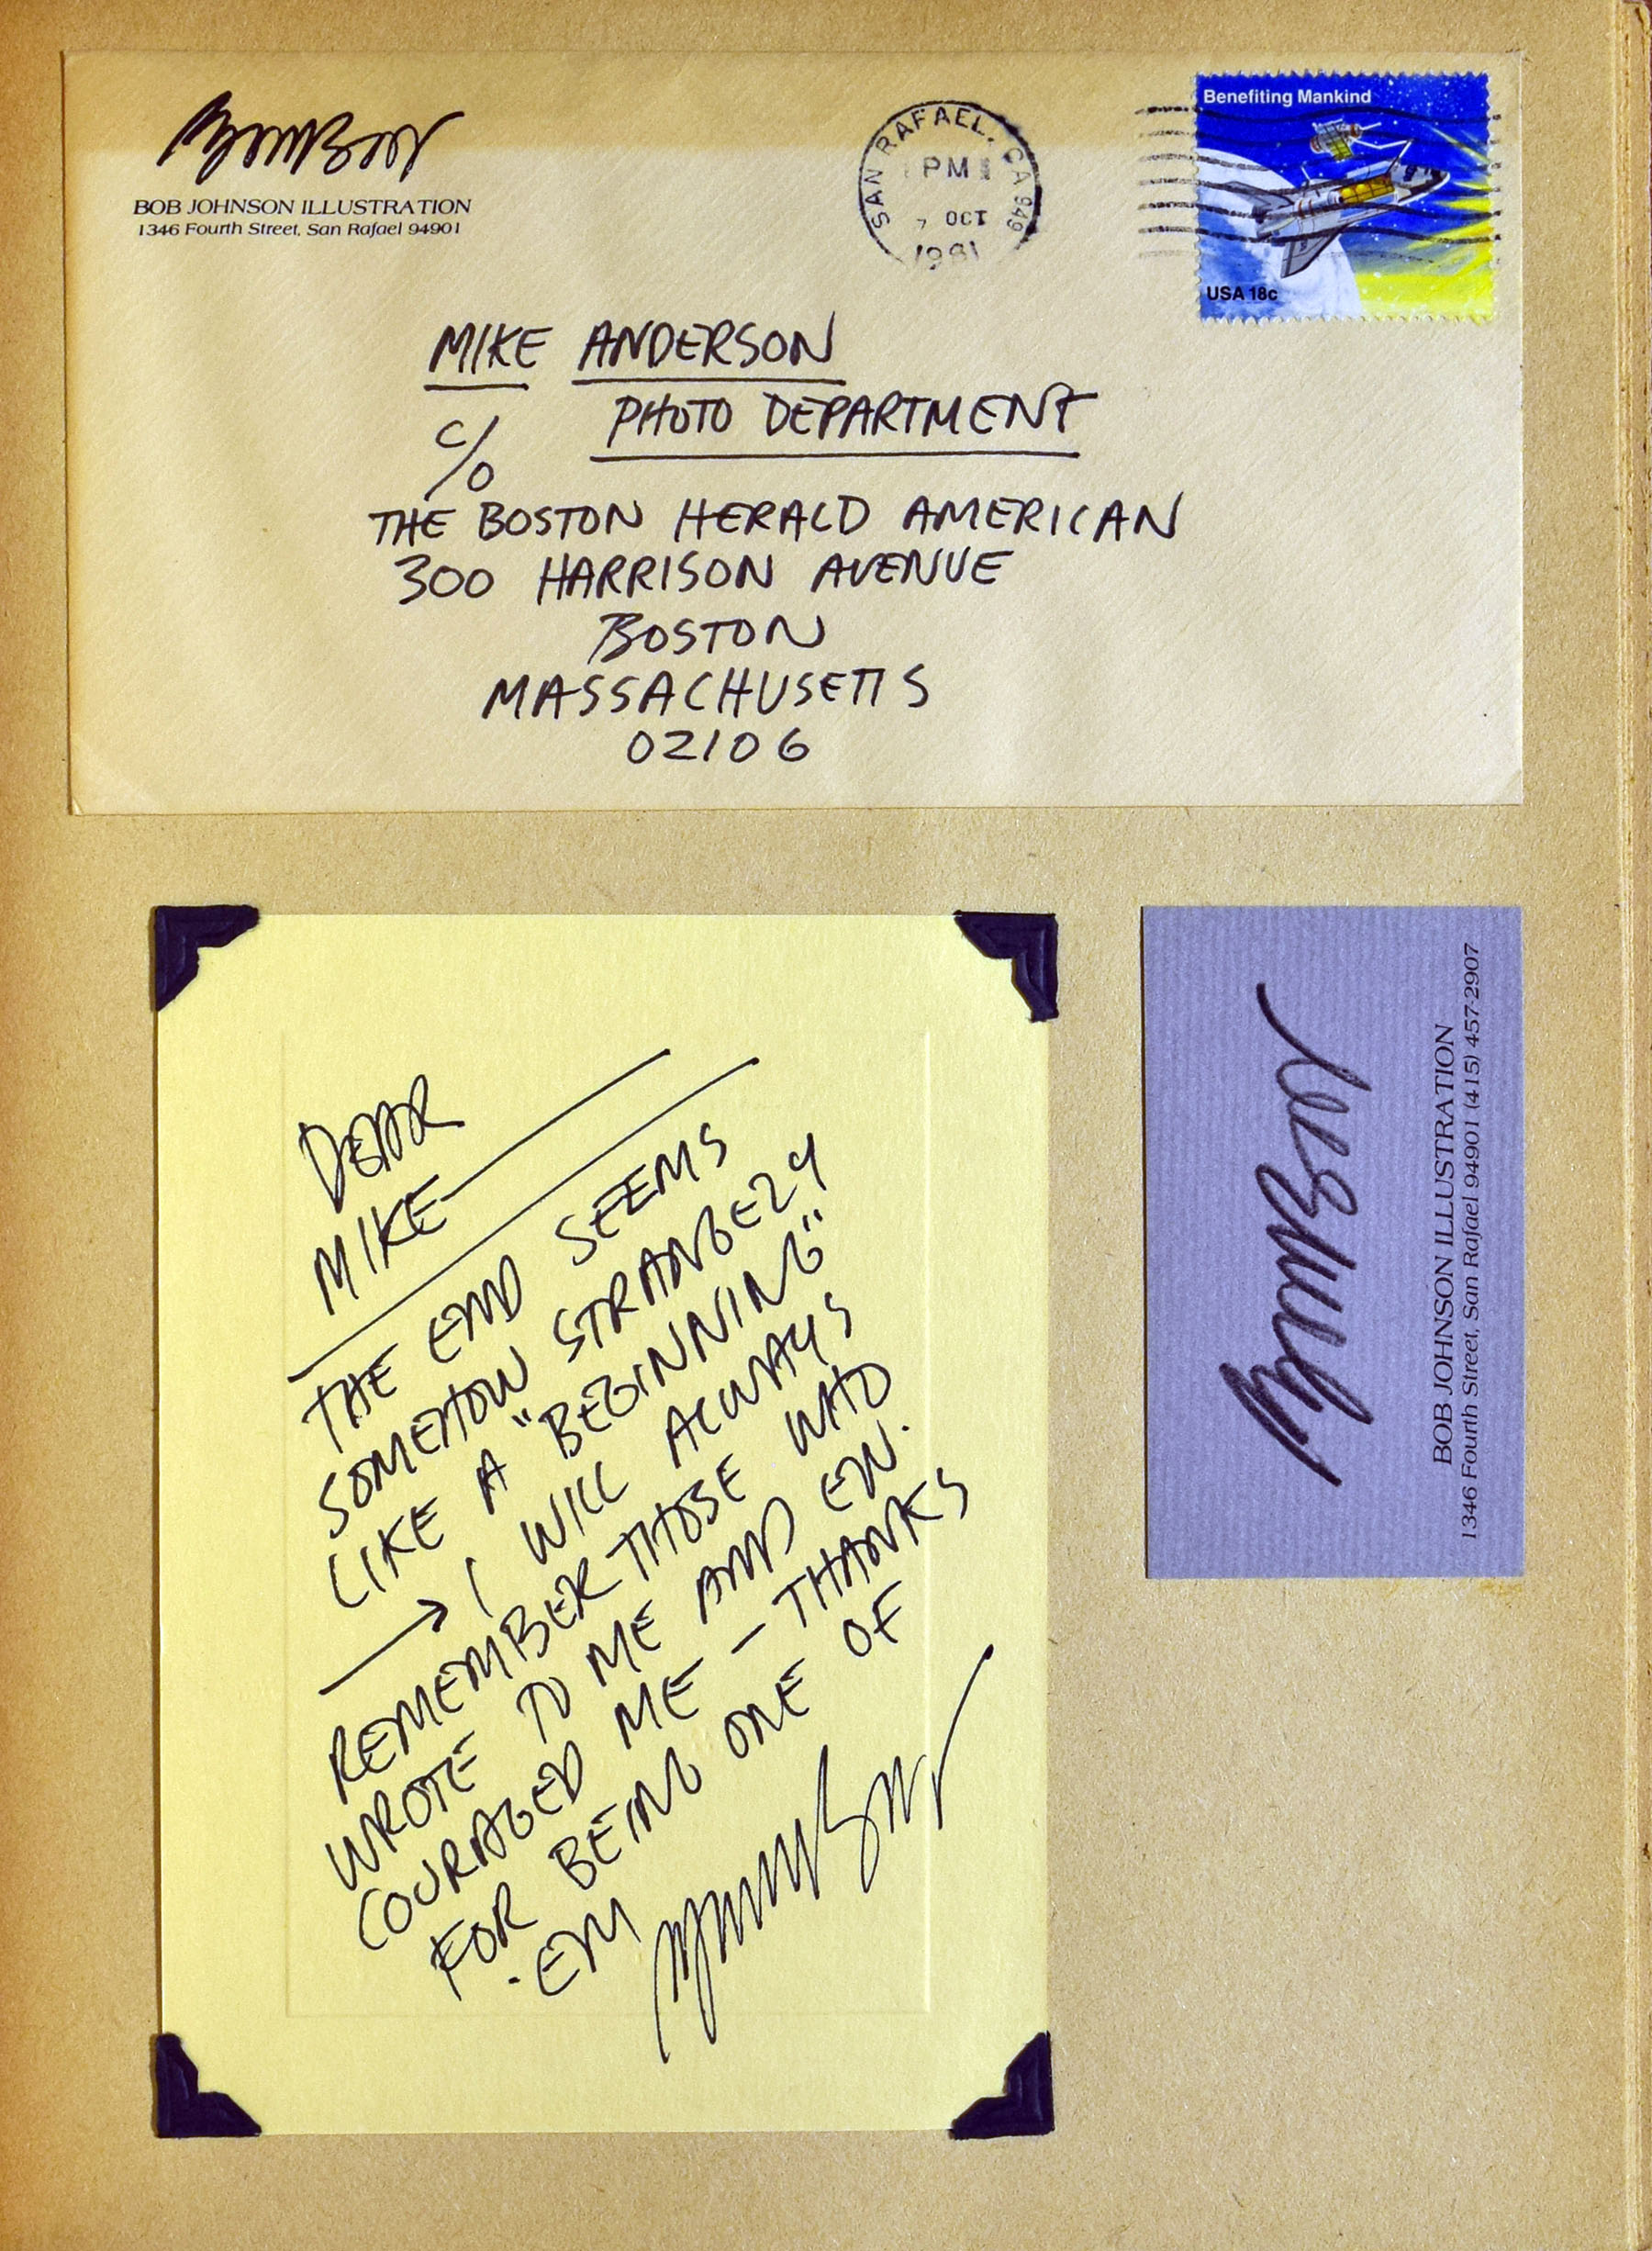 BOB JOHNSON ILLUSTRATION
1346 Fourth Street, San Rafael 94901
SAN RAFAEL, CA 949
PM
7 OCT
1981
Benefiting Mankind
USA 18c
MIKE ANDERSON
C/O PHOTO DEPARTMENT
THE BOSTON HERALD AMERICAN
300 HARRISON AVENUE
BOSTON
MASSACHUSETTS
02106
DEAR
MIKE
THE END SEEMS
SOMEHOW STRANGELY
LIKE A "BEGINNING"
→ I WILL ALWAYS
REMEMBER THOSE WHO
WROTE TO ME AND EN.
COURAGED ME — THANKS
FOR BEING ONE OF
·EM
BOB JOHNSON ILLUSTRATION
1346 Fourth Street, San Rafael 94901 (415) 457-2907